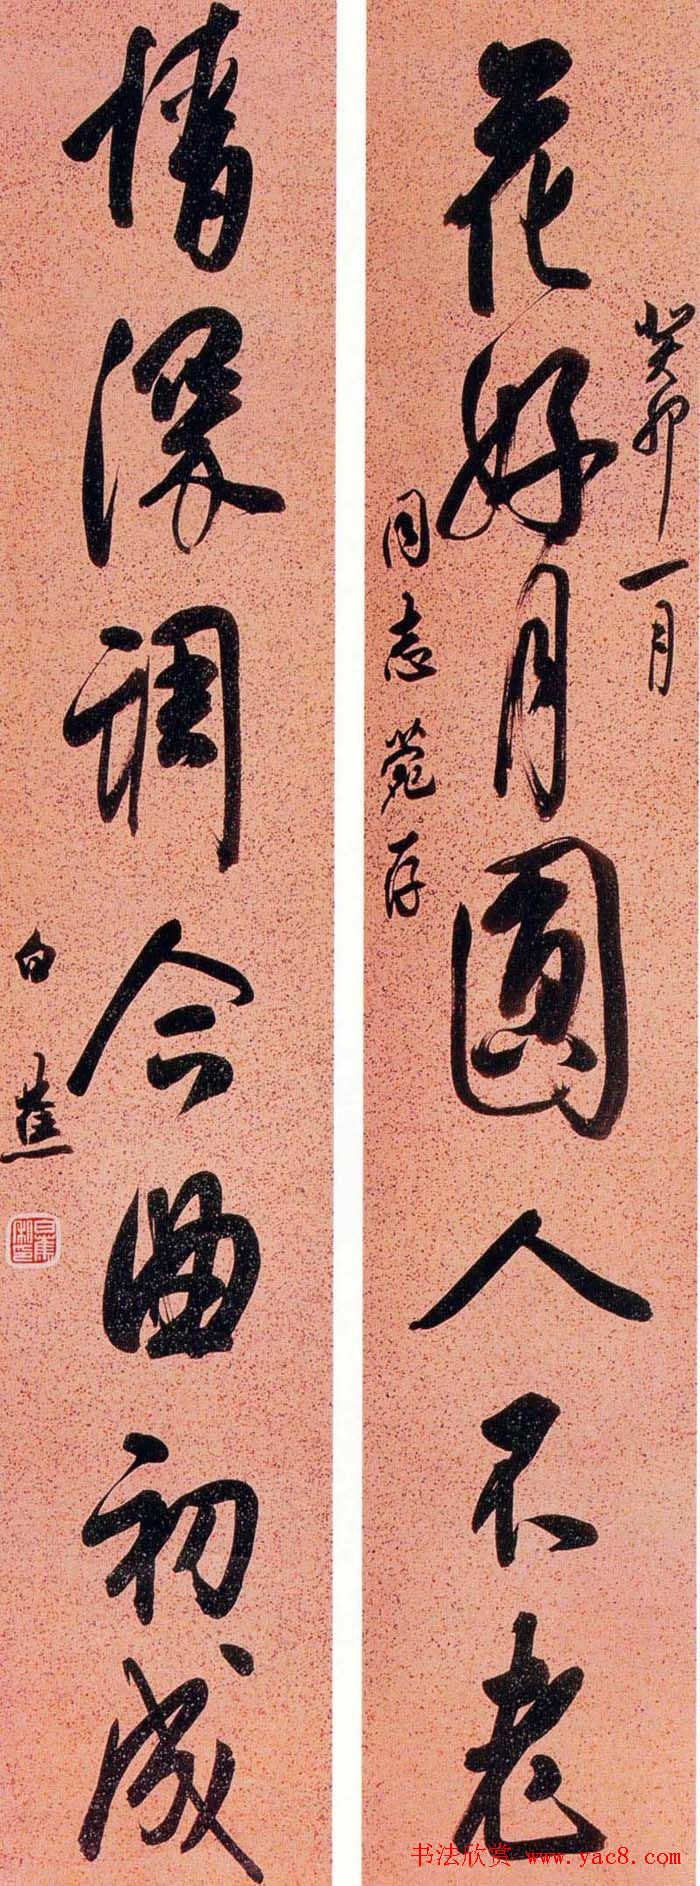 癸卯一月
花好月圆人不老
同志苑存
情深调合曲初成
白蕉
书法欣赏 www.yac8.com